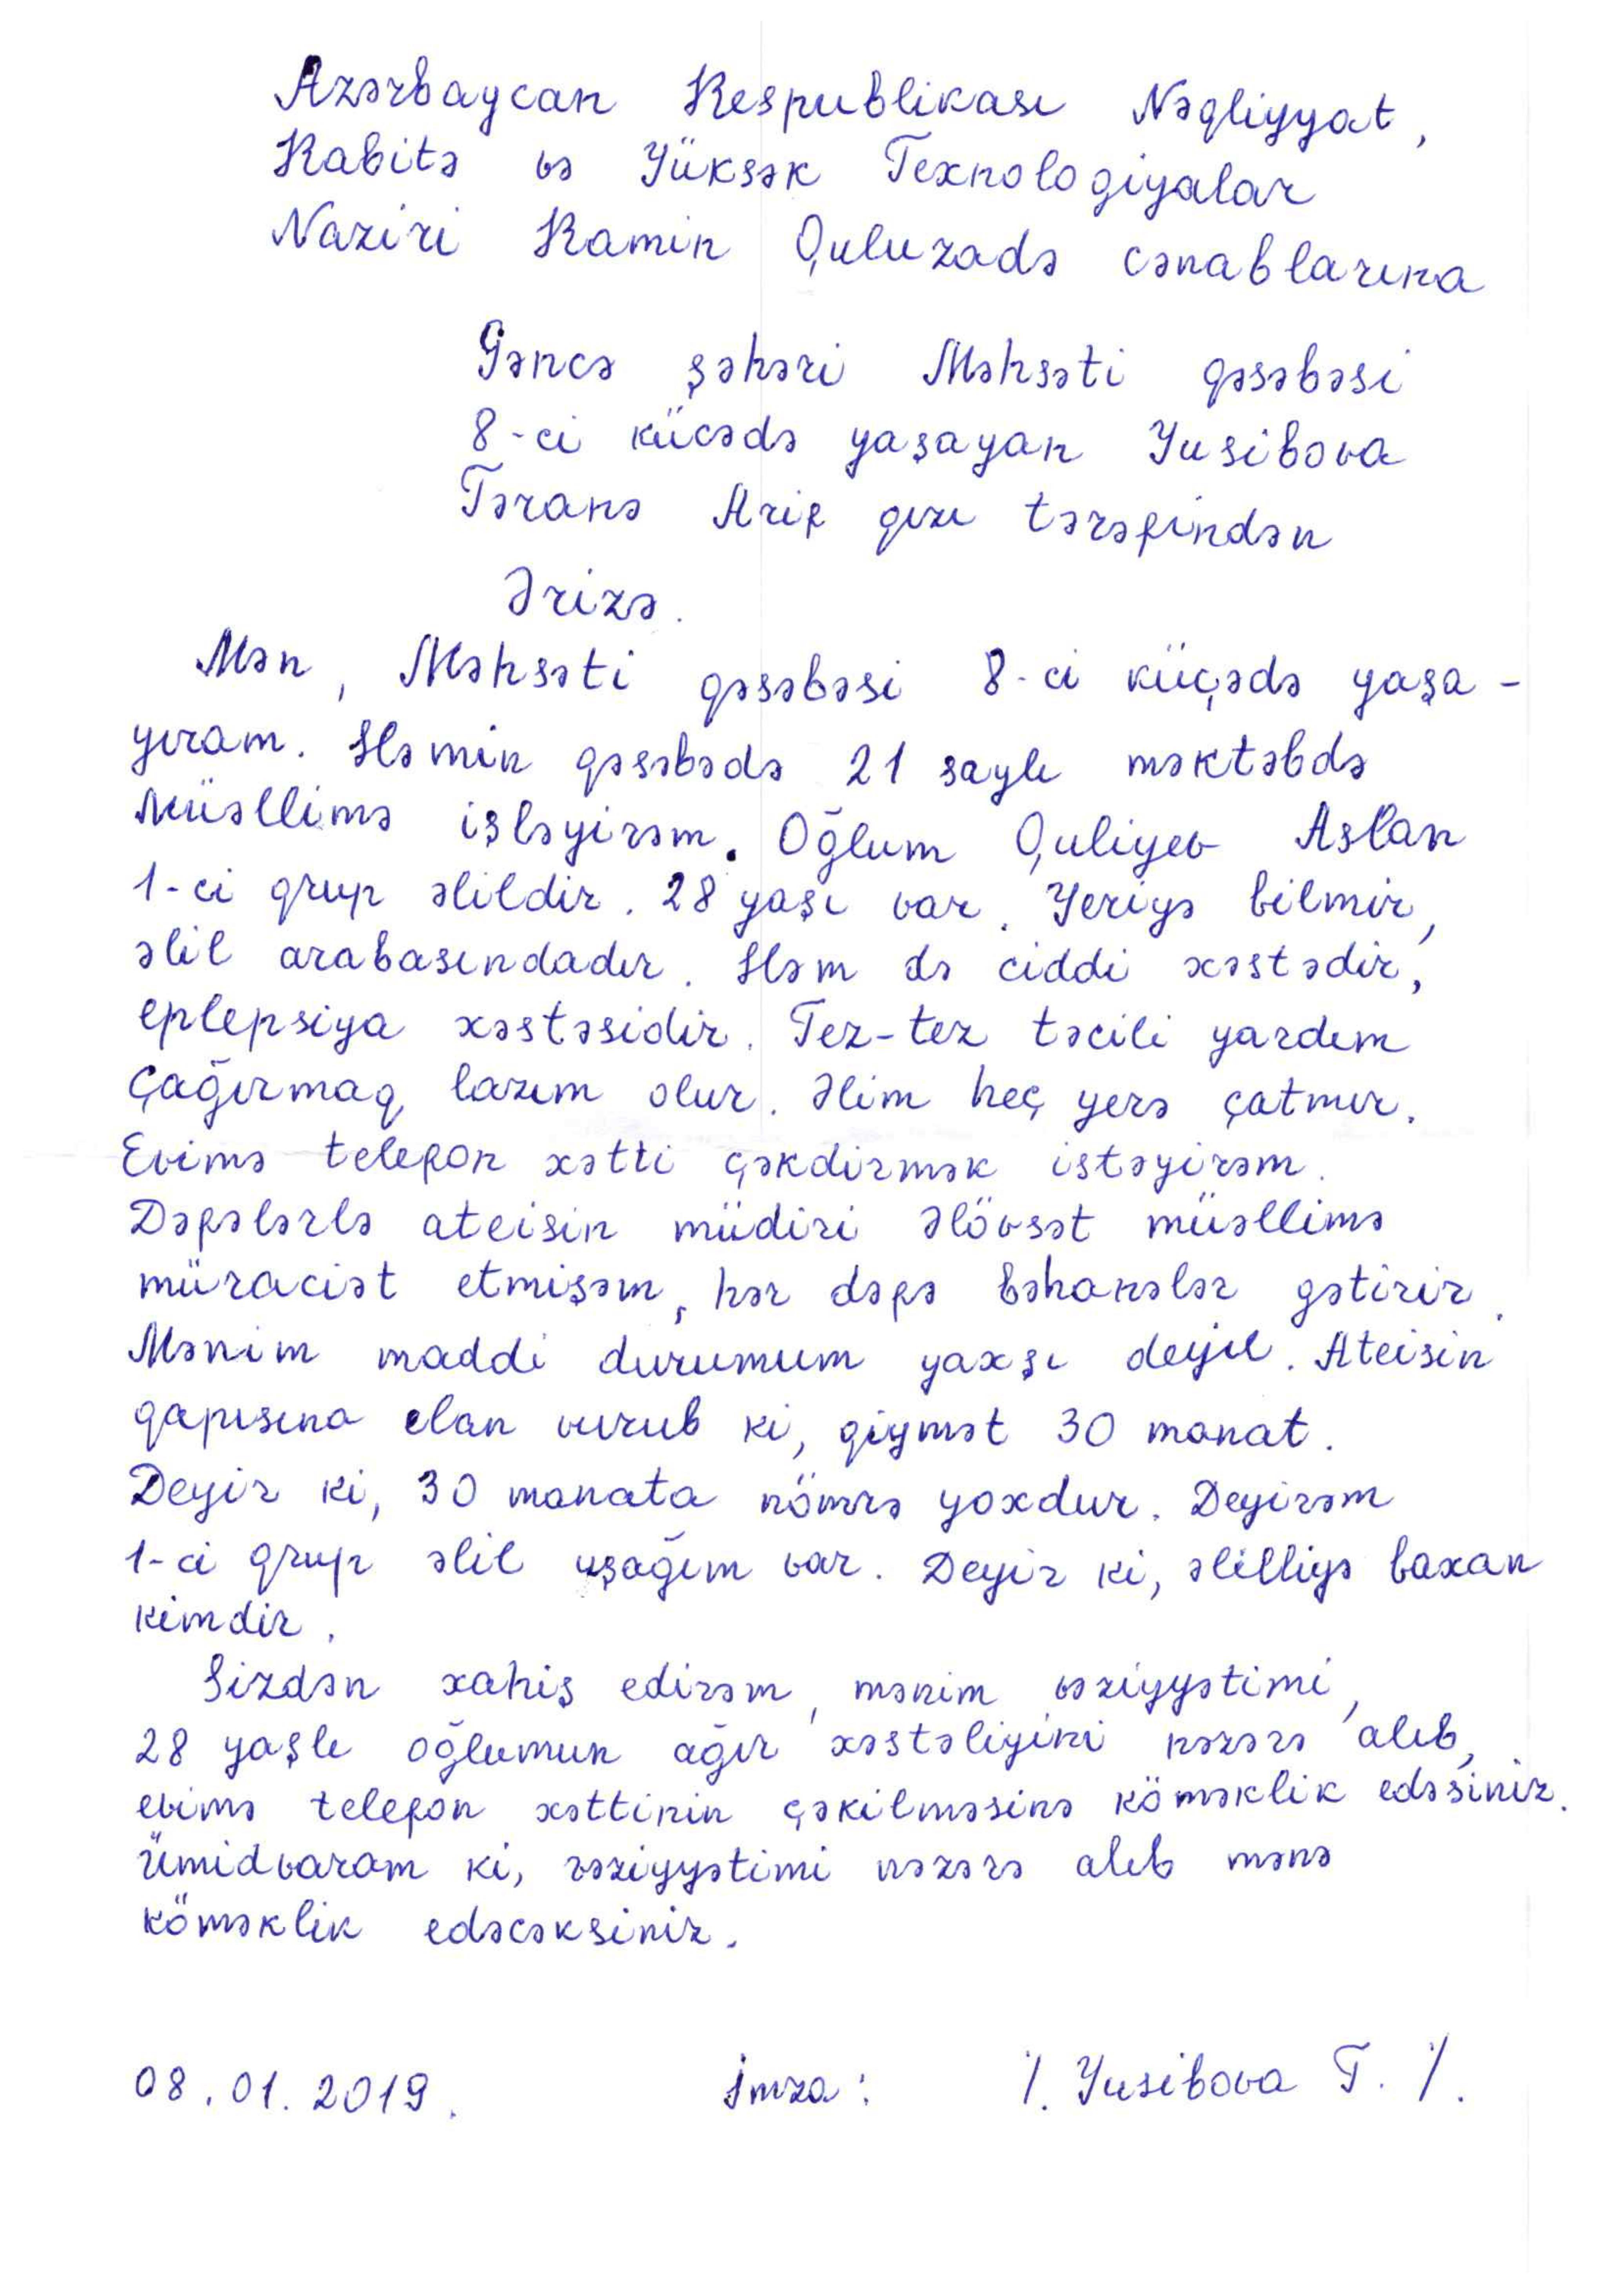 Azərbaycan Respublikası Nəqliyyat,
Rabitə və Yüksək Texnologiyalar
Naziri Ramin Quluzadə cənablarına
Gəncə şəhəri Məhsəti qəsəbəsi
8-ci kücədə yaşayan Yusibova
Təranə Arif qızı tərəfindən
Ərizə.
Mən, Məhsəti qəsəbəsi 8-ci küçədə yaşa-
yıram. Həmin qəsəbədə 21 saylı məktəbdə
Müəllimə işləyirəm. Oğlum Quliyev Aslan
1-ci qrup əlildir. 28 yaşı var. Yeriyə bilmir,
əlil arabasındadır. Həm də ciddi xəstədir,
eplepsiya xəstəsidir. Tez-tez təcili yardım
Çağırmaq lazım olur. Əlim heç yerə çatmır.
Evimə telefon xətti çəkdirmək istəyirəm.
Dəfələrlə ateisin müdiri Əlövsət müəllimə
müraciət etmişəm, hər dəfə bəhanələr gətirir.
Mənim maddi durumum yaxşı deyil. Ateisin
qapısına elan vurub ki, qiymət 30 manat.
Deyir ki, 30 manata nömrə yoxdur. Deyirəm
1-ci qrup əlil uşağım var. Deyir ki, əlilliyə baxan
kimdir.
Sizdən xahiş edirəm, mənim vəziyyətimi,
28 yaşlı oğlumun ağır xəstəliyini nəzərə alıb,
evimə telefon xəttinin çəkilməsinə köməklik edəsiniz.
Ümidvaram ki, vəziyyətimi nəzərə alıb mənə
köməklik edəcəksiniz.
08.01.2019. İmza: /. Yusibova T. /.